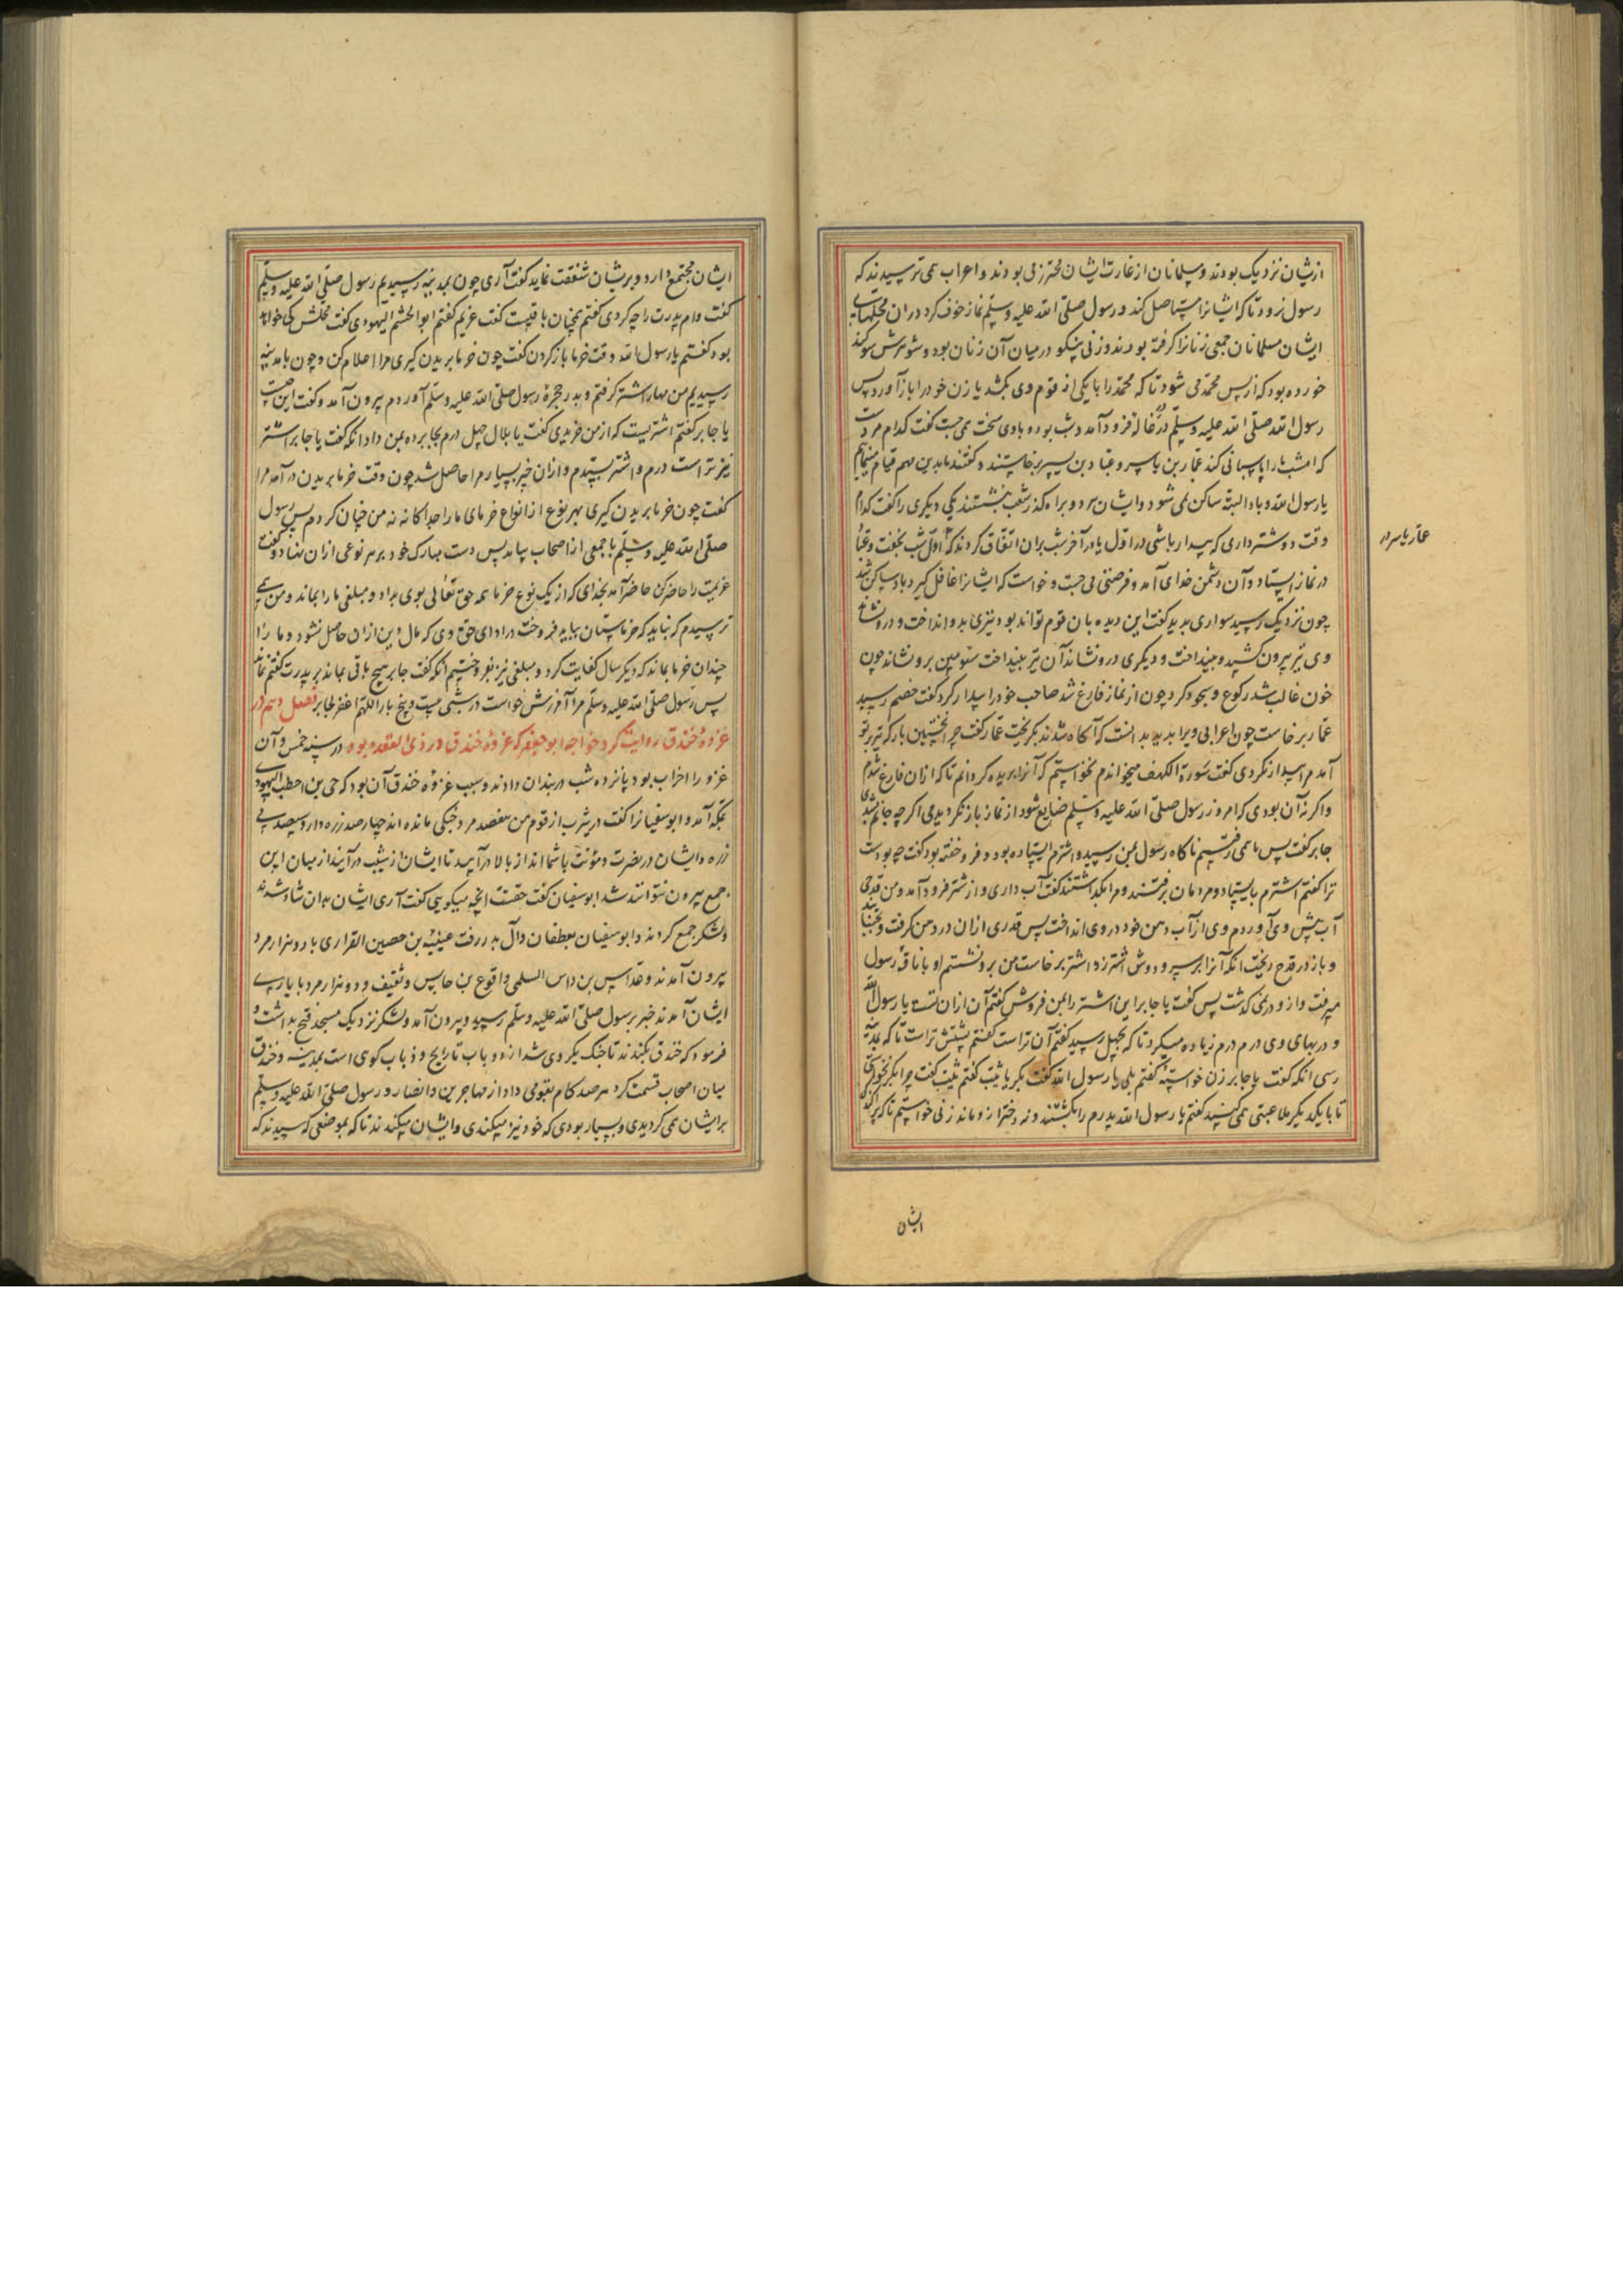 ازیشان نزدیک بودند و مسلمانان از غارت ایشان محترز می بودند و اعراب همی ترسیدند که
رسول نرود تا که ایشانرا مستاصل کند و رسول صلی الله علیه وسلم نماز خوف کرد در آن محلتهای
ایشان مسلمانان جمعی زنانرا گرفته بودند و زنی نیکو در میان آن زنان بود و شوهرش سوکند
خورده بود که از پس محمد می شود تا که محمد را با یکی از قوم وی بکشد یا زن خود را باز آورد پس
رسول الله صلی الله علیه وسلم در غاله فرود آمد و شب بود و بادی سخت می جست گفت کدام مردست
که امشب ما را پاسبانی کند عمار بن یاسر و عباد بن بسر برخاستند و گفتند ما بدین مهم قیام نماییم
یا رسول الله و باد البته ساکن نمی شود و ایشان هر دو براه گذر شعب بنشستند یکی دیگری را گفت کدام
وقت دوستر داری که بیدار باشی در اول یا در آخر شب بران اتفاق کردند که اول شب بخفت و عباد
در نماز ایستاد و آن دشمن خدای آمد و فرصتی می جست و خواست که ایشانرا غافل گیرد باد ساکن شد
چون نزدیک رسید سواری بدید گفت این دیده بان قوم تواند بود تیری بدو انداخت و درو نشاند
وی تیر بیرون کشید و بینداخت و دیگری درو نشاند آن تیر بینداخت سومین برو نشاند چون
خون غالب شد رکوع و سجود کرد چون از نماز فارغ شد صاحب خود را بیدار کرد گفت خصم رسید
عمار برخاست چون اعرابی ویرا بدید بدانست که آگاه شدند بگریخت عمار گفت چرا نخستین بار که تیر بر تو
آمد مرا بیدار نکردی گفت سورة الکهف میخواندم نخواستم که آنرا بریده گردانم تا که از آن فارغ شدم
و اگر نه آن بودی که امروز رسول صلی الله علیه وسلم ضایع شود از نماز باز نگردیدمی اگر چه جانم بشدی
جابر گفت پس ما همی رفتیم ناگاه رسول بمن رسید و اشترم ایستاده بود و فرو خفته بود گفت چه بودست
ترا گفتم اشترم بایستاد و مردمان برفتند و مرا بگذاشتند گفت آب داری و از شتر فرود آمد و من قدحی
آب پیش وی آوردم وی از آب دهن خود در وی انداخت پس قدری از آن در دهن گرفت و بجنبانید
و باز در قدح ریخت آنگه آنرا بر سر و دوش اشتر زد اشتر برخاست من برو نشستم او با ناقه رسول
میرفت و ازو در نمی گذشت پس گفت یا جابر این اشتر را بمن فروش گفتم آن از آن تست یا رسول الله
و در بهای وی درم درم زیاده میکرد تا که بچهل رسید گفتم آن تراست گفتم پشتش تراست تا که بمدینه
رسی آنگه گفت یا جابر زن خواسته گفتم بلی یا رسول الله گفت بکر یا ثیب گفتم ثیب گفت چرا بکر نخواستی
تا با یکدیگر ملاعبتی همی کنید گفتم یا رسول الله پدرم را بکشتند و نه دختر ازو ماند زنی خواستم تا که پراکندگی
عمار یاسر در
ایشان
ایشان مجتمع دارد و بریشان شفقت نماید گفت آری چون بمدینه رسیدیم رسول صلی الله علیه وسلم
گفت وام پدرت را چه کردی گفتم همچنان باقیست گفت غریم گفتم ابوالحشم الیهودی گفت محلش کی خواهد
بود گفتم یا رسول الله وقت خرما باز کردن گفت چون خرما بریدن گیری مرا اعلام کن و چون با مدینه
رسیدیم من مهار اشتر گرفتم و بدر حجره رسول صلی الله علیه وسلم آوردم بیرون آمد و گفت این چیست
یا جابر گفتم اشتریست که از من خریدی گفت یا بلال چهل درم بجابر ده بمن داد آنگه گفت یا جابر اشتر
نیز تراست درم و اشتر بستدم و از آن خیر بسیار مرا حاصل شد چون وقت خرما بریدن در آمد مرا
گفت چون خرما بریدن گیری بهر نوع از انواع خرمای ما را جداگانه نه من چنان کردم پس رسول
صلی الله علیه وسلم با جمعی از اصحاب بیامد پس دست مبارک خود بر هر نوعی از آن نهاد و گفت
غریمت را حاضر کن حاضر آمد بخدای که از یک نوع خرما همه حق تعالی بوی بداد و مبلغی ما را بماند و من همی
ترسیدم که نباید که خرماستان بباید فروخت در ادای حق وی که مال دین از آن حاصل نشود و ما را
چندان خرما بماند که دیگر سال کفایت کرد و مبلغی نیز بفروختیم آنگه گفت جابر هیچ باقی بماند بر پدرت گفتم نماند
پس رسول صلی الله علیه وسلم مرا آمرزش خواست در شبی بیست و پنج بار اللهم اغفر لجابر فصل دهم در
غزوهٔ خندق روایت کرد خواجه ابوجعفر که غزوهٔ خندق در ذی القعده بود در سنه خمس و آن
غزو را احزاب بود پانزده شب در بندان دادند و سبب غزوهٔ خندق آن بود که حی بن احطب الیهودی
بمکه آمد و ابوسفیانرا گفت در یثرب از قوم من هفصد مرد جنگی مانده اند چهارصد زره دار و سیصد بی
زره و ایشان در نصرت و مؤنت با شما اند از بالا در آیید تا ایشان از شیب در آیند از میان این
جمع بیرون نتوانند شد ابوسفیان گفت حقست آنچه میگویی گفت آری ایشان بدان شاد شدند
و لشکر جمع کردند و ابوسفیان بغطفان و آل بدر رفت عیینة بن حصین الفراری با دو هزار مرد
بیرون آمدند و عداس بن داس السلمی و اقوع بن حابس و ثقیف و دو هزار مرد با یارسی
ایشان آمدند خبر برسول صلی الله علیه وسلم رسید و بیرون آمد و لشکر نزدیک مسجد فتح بداشت و
فرمود که خندق بکندند تا جنگ یکروی شد از دو باب تا رابح و ذباب کوی است بمدینه و خندق
میان اصحاب قسمت کرد هر صد گام بقومی داد از مهاجرین و انصار و رسول صلی الله علیه وسلم
بر ایشان همی گردیدی و بسیار بودی که خود نیز میکندی و ایشان میکندند تا که بموضعی که رسیدند که